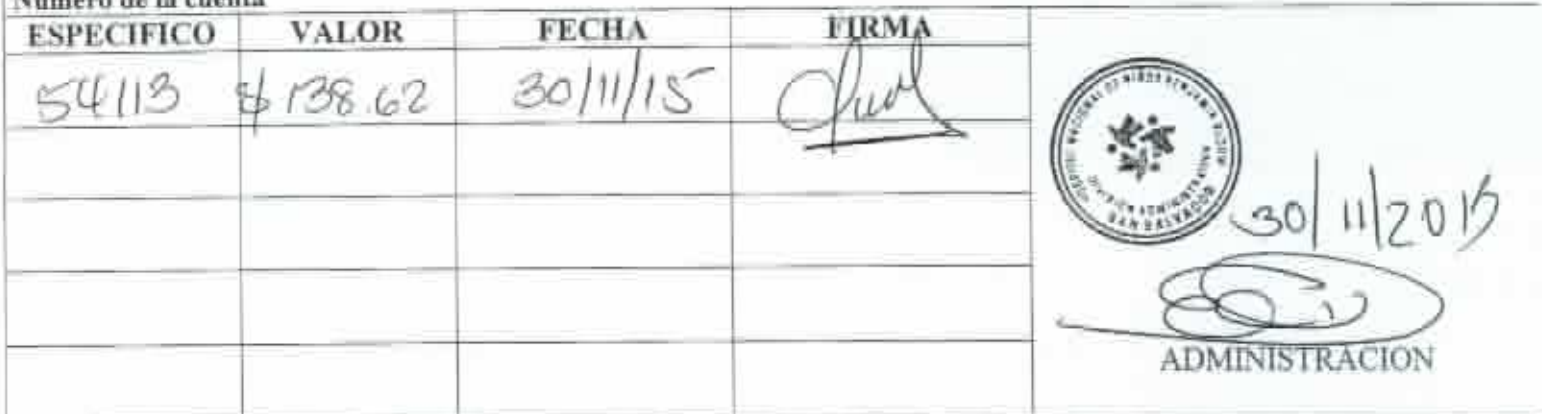 Número de la cuenta
ESPECIFICO VALOR FECHA FIRMA
54113 $ 138.62 30/11/15
HOSPITAL NACIONAL DE NIÑOS BENJAMIN BLOOM
DIVISION ADMINISTRATIVA
SAN SALVADOR
30/11/2015
ADMINISTRACION